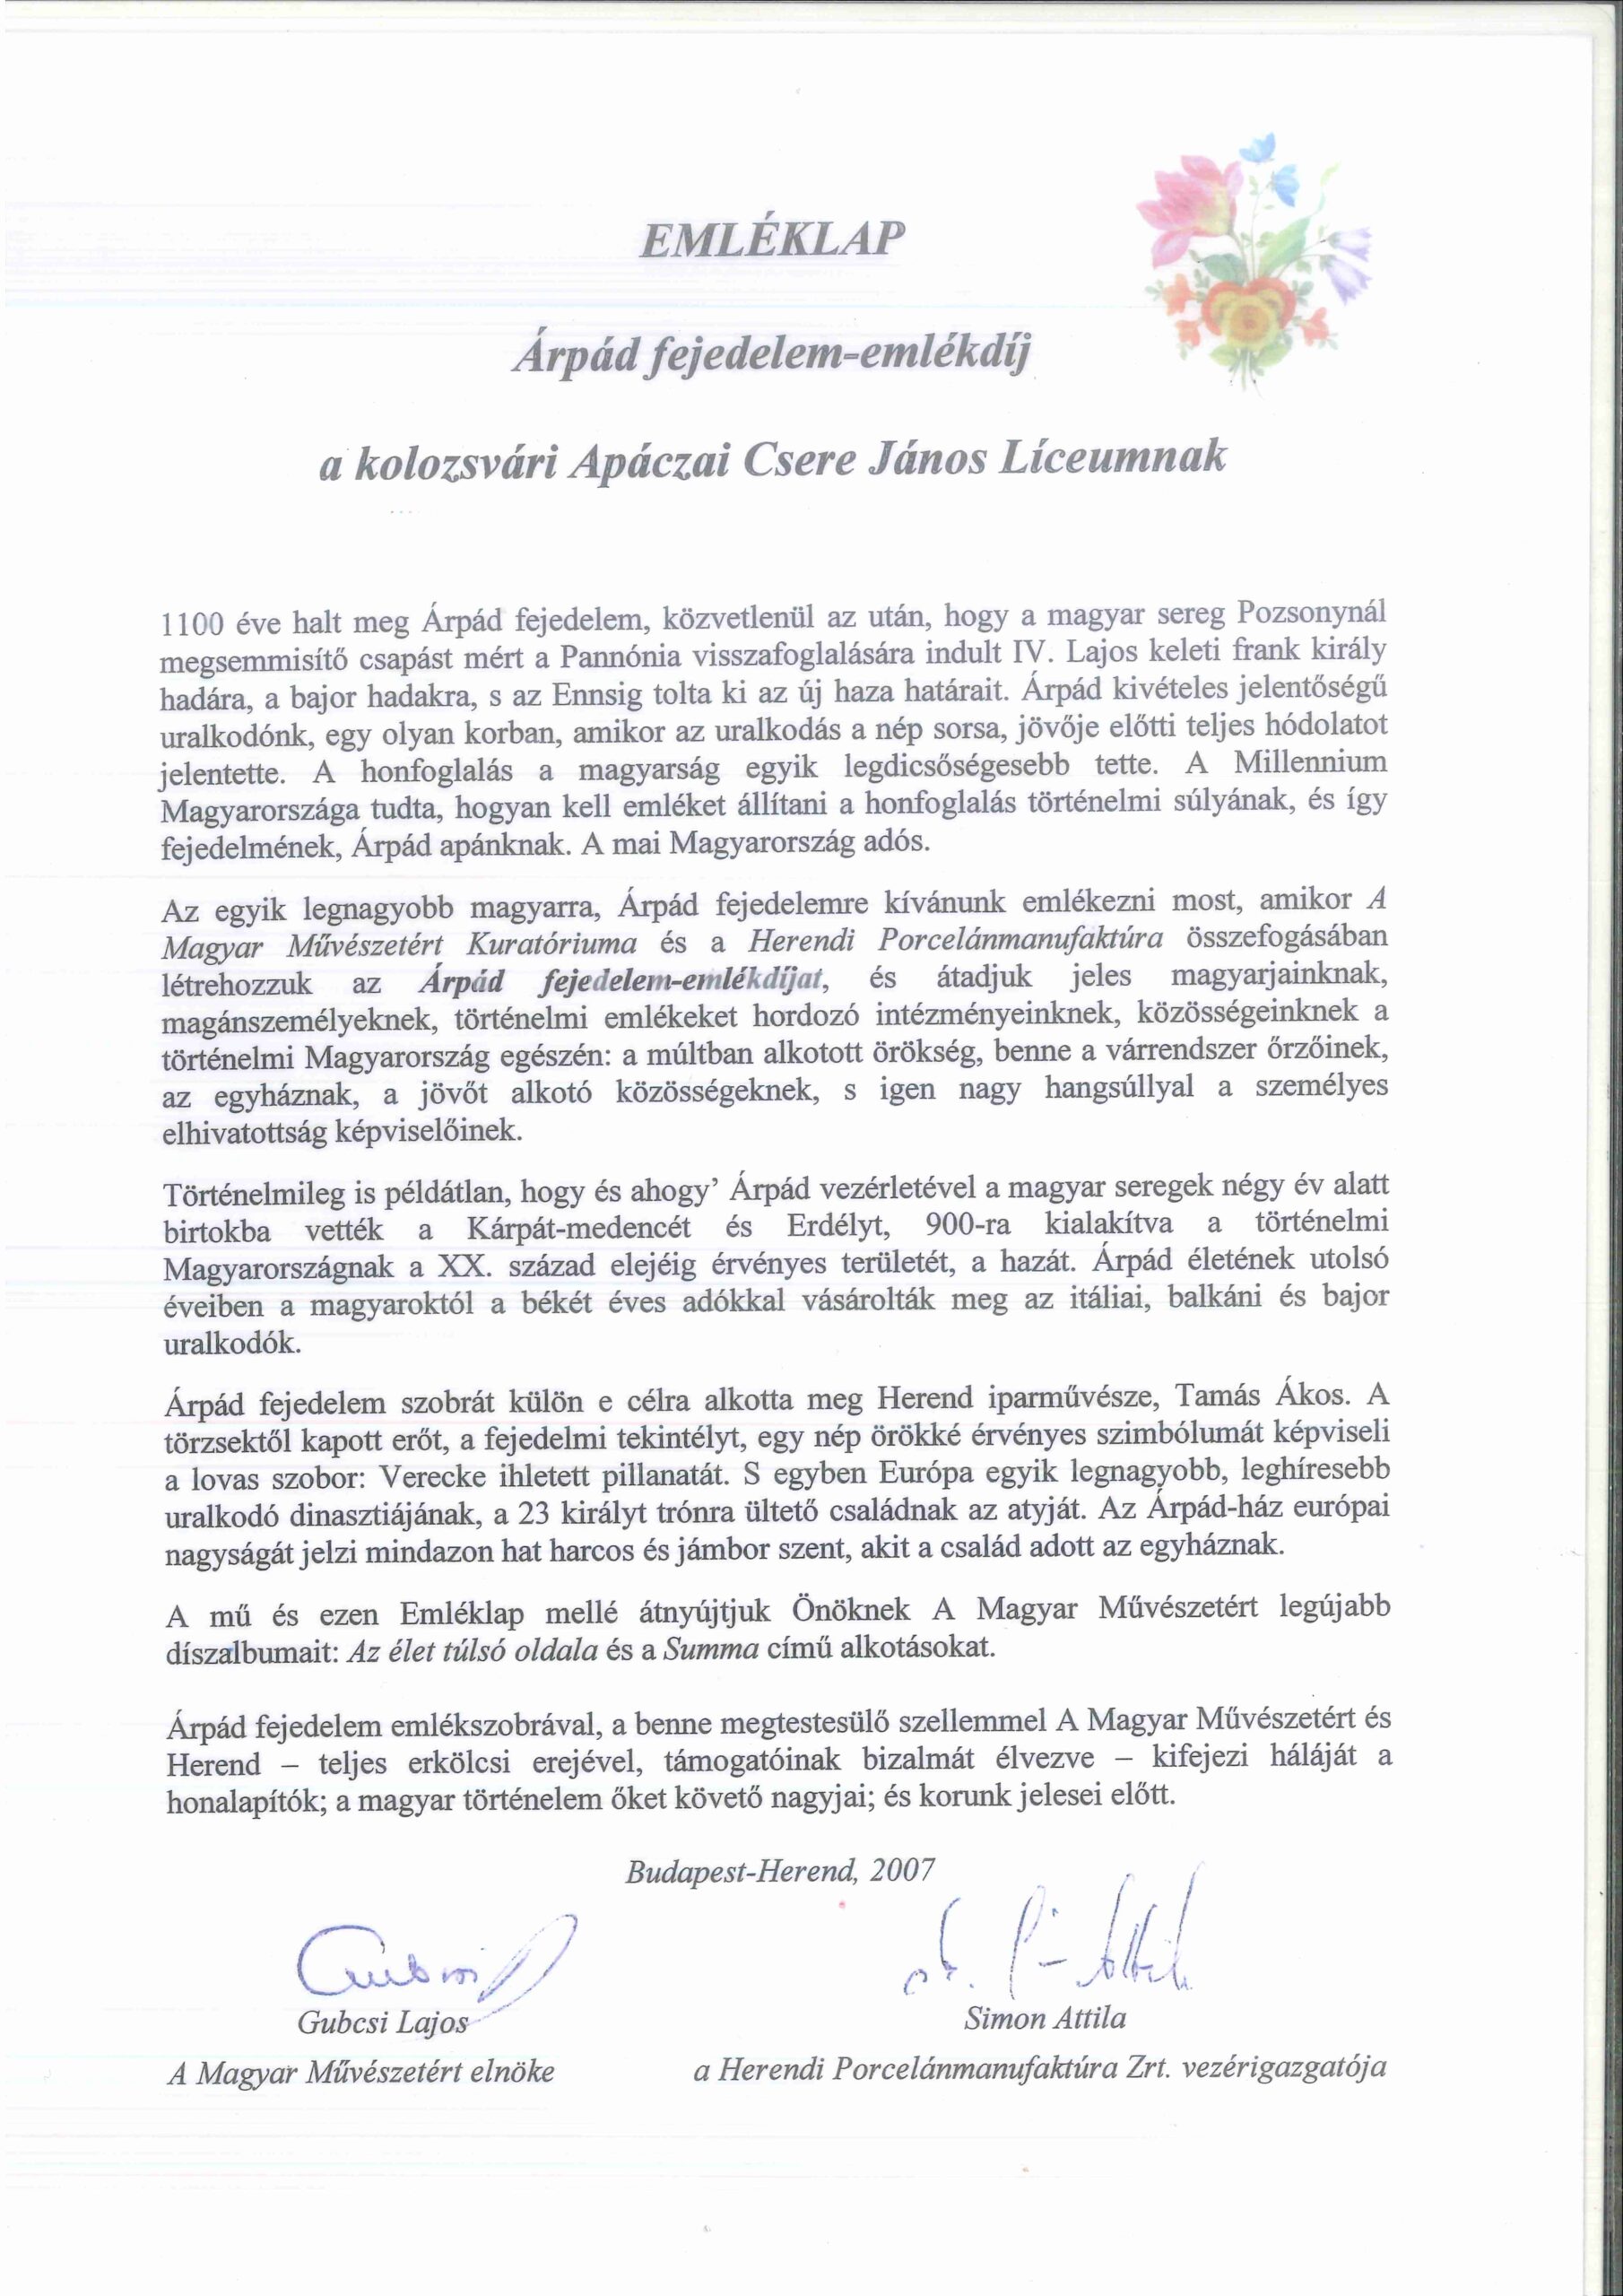 EMLÉKLAP
Árpád fejedelem-emlékdíj
a kolozsvári Apáczai Csere János Líceumnak
1100 éve halt meg Árpád fejedelem, közvetlenül az után, hogy a magyar sereg Pozsonynál
megsemmisítő csapást mért a Pannónia visszafoglalására indult IV. Lajos keleti frank király
hadára, a bajor hadakra, s az Ennsig tolta ki az új haza határait. Árpád kivételes jelentőségű
uralkodónk, egy olyan korban, amikor az uralkodás a nép sorsa, jövője előtti teljes hódolatot
jelentette. A honfoglalás a magyarság egyik legdicsőségesebb tette. A Millennium
Magyarországa tudta, hogyan kell emléket állítani a honfoglalás történelmi súlyának, és így
fejedelmének, Árpád apánknak. A mai Magyarország adós.
Az egyik legnagyobb magyarra, Árpád fejedelemre kívánunk emlékezni most, amikor A
Magyar Művészetért Kuratóriuma és a Herendi Porcelánmanufaktúra összefogásában
létrehozzuk az Árpád fejedelem-emlékdíjat, és átadjuk jeles magyarjainknak,
magánszemélyeknek, történelmi emlékeket hordozó intézményeinknek, közösségeinknek a
történelmi Magyarország egészén: a múltban alkotott örökség, benne a várrendszer őrzőinek,
az egyháznak, a jövőt alkotó közösségeknek, s igen nagy hangsúllyal a személyes
elhivatottság képviselőinek.
Történelmileg is példátlan, hogy és ahogy’ Árpád vezérletével a magyar seregek négy év alatt
birtokba vették a Kárpát-medencét és Erdélyt, 900-ra kialakítva a történelmi
Magyarországnak a XX. század elejéig érvényes területét, a hazát. Árpád életének utolsó
éveiben a magyaroktól a békét éves adókkal vásárolták meg az itáliai, balkáni és bajor
uralkodók.
Árpád fejedelem szobrát külön e célra alkotta meg Herend iparművésze, Tamás Ákos. A
törzsektől kapott erőt, a fejedelmi tekintélyt, egy nép örökké érvényes szimbólumát képviseli
a lovas szobor: Verecke ihletett pillanatát. S egyben Európa egyik legnagyobb, leghíresebb
uralkodó dinasztiájának, a 23 királyt trónra ültető családnak az atyját. Az Árpád-ház európai
nagyságát jelzi mindazon hat harcos és jámbor szent, akit a család adott az egyháznak.
A mű és ezen Emléklap mellé átnyújtjuk Önöknek A Magyar Művészetért legújabb
díszalbumait: Az élet túlsó oldala és a Summa című alkotásokat.
Árpád fejedelem emlékszobrával, a benne megtestesülő szellemmel A Magyar Művészetért és
Herend – teljes erkölcsi erejével, támogatóinak bizalmát élvezve – kifejezi háláját a
honalapítók; a magyar történelem őket követő nagyjai; és korunk jelesei előtt.
Budapest-Herend, 2007
Gubcsi Lajos
Simon Attila
A Magyar Művészetért elnöke
a Herendi Porcelánmanufaktúra Zrt. vezérigazgatója